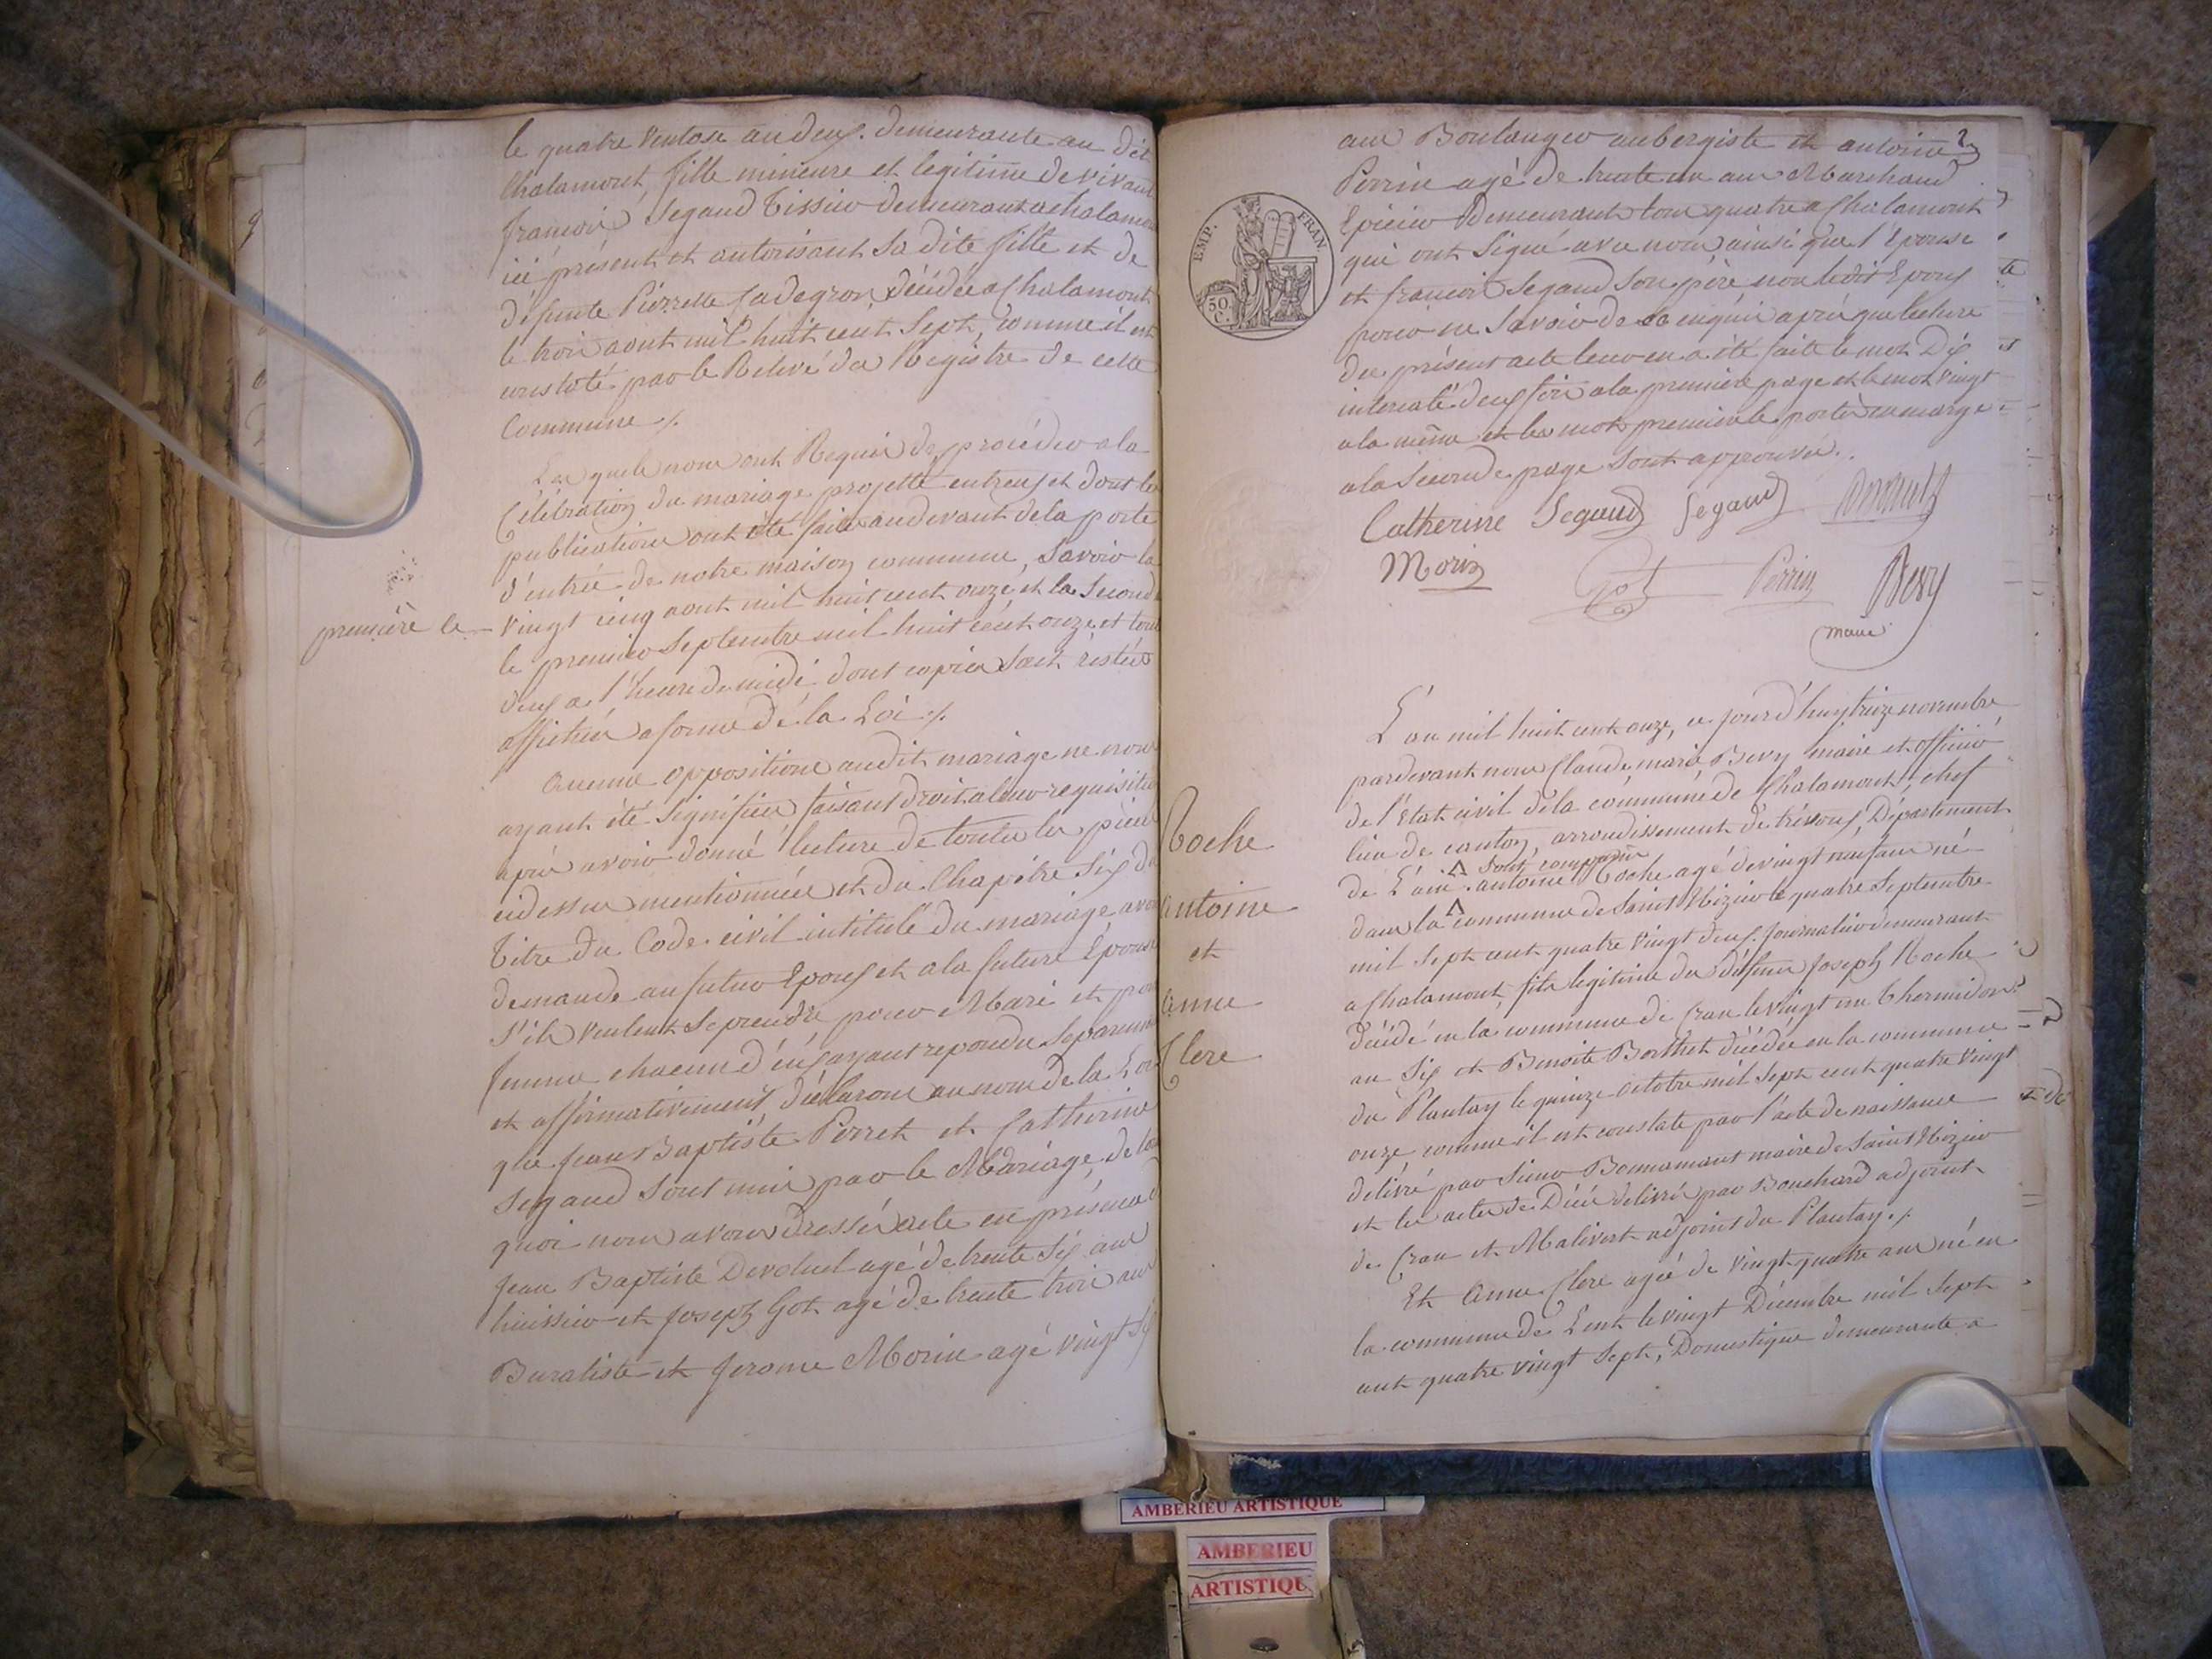 le quatre Ventose an deux. demeurante au dit
Chalamont, fille mineure et legitime de vivant
francois Segaud Tissier demeurant a chalamont
ici présent et autorisant sa dite fille et de
défunte Pierrette Cadegron décédée a Chalamont
le trois aout mil huit cent Sept, comme il est
constaté par le Relevé du Registre de cette
Commune ./.
Les quels nous ont Requis de procéder a la
Célébration du mariage projetté entreux et dont les
publications ont été faites audevant de la porte
d'entrée de notre maison commune, Savoir la
première le vingt cinq aout mil huit cent onze et la Seconde
le premier Septembre mil huit cent onze et tous
deux a l'heure de midi dont copies sont restées
affichées a forme de la Loi ./.
Aucune oppositions audit mariage ne nous
ayant été Signifiées, faisant droit a leur requisition
après avoir donné lecture de toutes les pièces
cidessus mentionnées et du Chapitre Six du
Titre du Code civil intitulé du mariage avons
demandé au futur Epoux et a la future Epouse
S'ils veulent Se prendre pour Mari et pour
femme chacun d'eux ayant repondu Séparément
et affirmativement, déclarons au nom de la Loi
que Jean Baptiste Perret et Catherine
Segaud Sont unis par le Mariage, de tout
quoi nous avons dressé acte en présence de
Jean Baptiste Devoluet agé de trente Six ans
huissier et Joseph Got agé de trente trois ans
Buraliste et Jerome Morin agé vingt Six
ans Boulanger aubergiste et antoine
Perrin agé de trente un ans Marchand
Epicier Demeurant tous quatre a Chalamont
qui ont Signé avec nous ainsi que l'Epouse
et francois Segaud Son père non ledit Epoux
pour ne Savoir de ce enquis après que lecture
du présent acte leur en a été faite le mot Dix
intercalé deux fois a la première page et le mot vingt
a la même et les mots première le portés en marge
a la Seconde page Sont approuvés.
Catherine Segaud Segaud
Morin Got Perrin Bevy
maire
L'an mil huit cent onze, ce jourd'huy treize novembre
pardevant nous Claude marie Bevy maire et officier
de l'Etat civil de la commune de Chalamont, chef
lieu de canton, arrondissement de trévoux, Département
Sont comparus
de L'ain. antoine Roche agé de vingt neuf ans né
dans la commune de Saint Nizier le quatre Septembre
mil Sept cent quatre vingt deux. Journalier demeurant
a Chalamont, fils legitime du défunt Joseph Roche
décédé en la commune de Cran le vingt un thermidor
an Six et Benoite Borthet décédée en la commune
du Plantay le quinze octobre mil Sept cent quatre vingt
onze comme il est constaté par l'acte de naissance
délivré par Simo Bonnamant maire de Saint Nizier
et les actes de Décès délivrés par Bouchard adjoint
de Cran et Malivert adjoint du Plantay ./.
Et Anne Clere agée de vingt quatre ans né en
la commune de Lent le vingt Décembre mil Sept
cent quatre vingt Sept, Domestique demeurante a
Roche
antoine
et
anne
Clere
EMP. FRAN.
50 C.
AMBERIEU ARTISTIQUE
AMBERIEU
ARTISTIQU